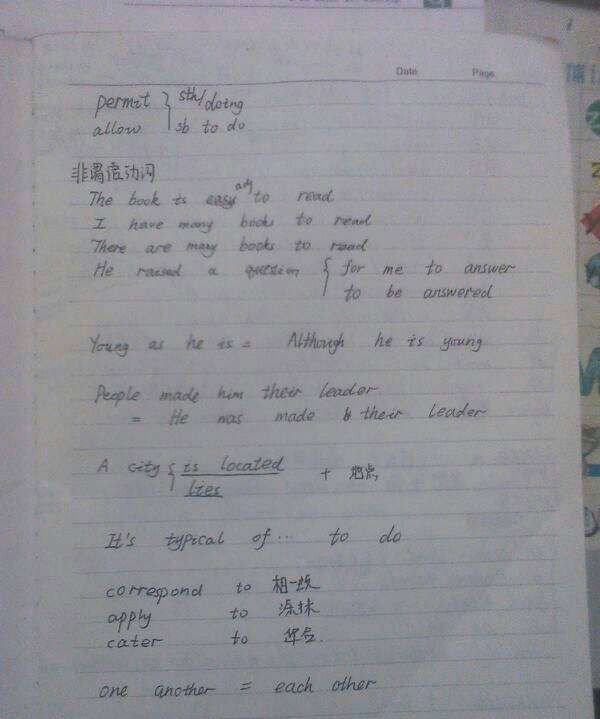 Date Page
permit } sth/doing
allow } sb to do
非谓语动词
The book is easy adj to read
I have many books to read
There are many books to read
He raised a question { for me to answer
to be answered
Young as he is = Although he is young
People made him their leader
= He was made their leader
A city { is located + 地点
lies
It's typical of … to do
correspond to 相一致
apply to 涂抹
cater to 迎合
one another = each other